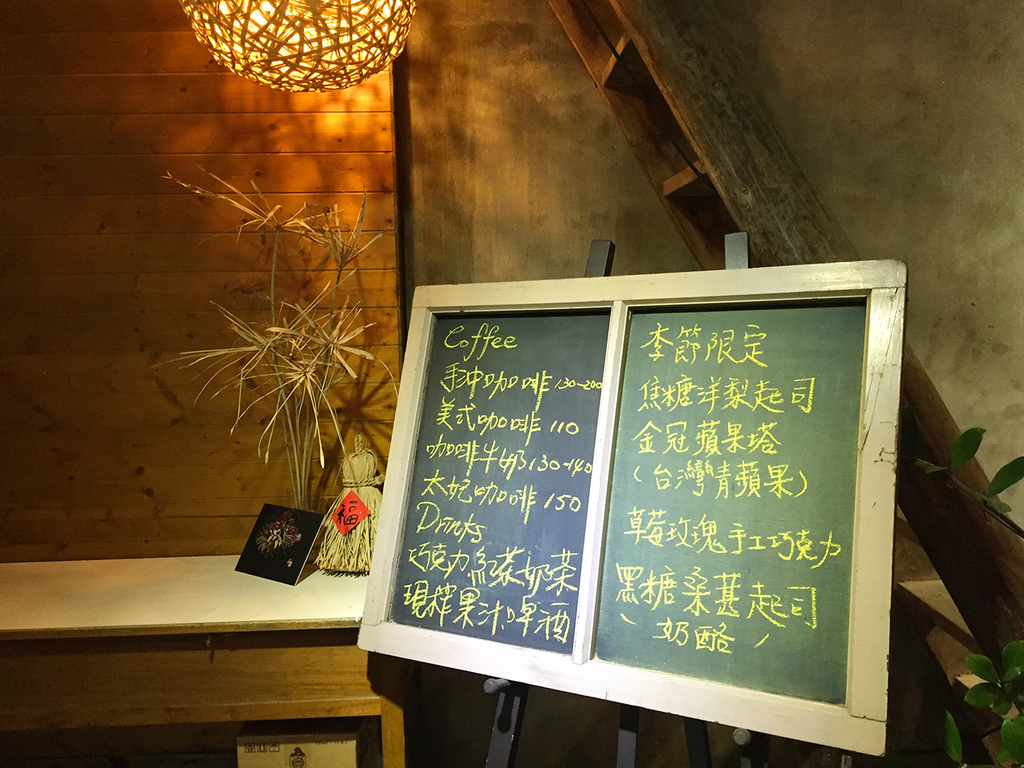 Coffee
手沖咖啡 130~200
美式咖啡 110
咖啡牛奶 130~140
太妃咖啡 150
Drinks
巧克力 紅茶 奶茶
現榨果汁 啤酒
季節限定
焦糖洋梨起司
金冠蘋果塔
(台灣青蘋果)
草莓玫瑰手工巧克力
黑糖桑葚起司
(奶酪)
福